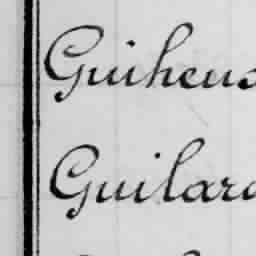 Guiheuc
Guilard